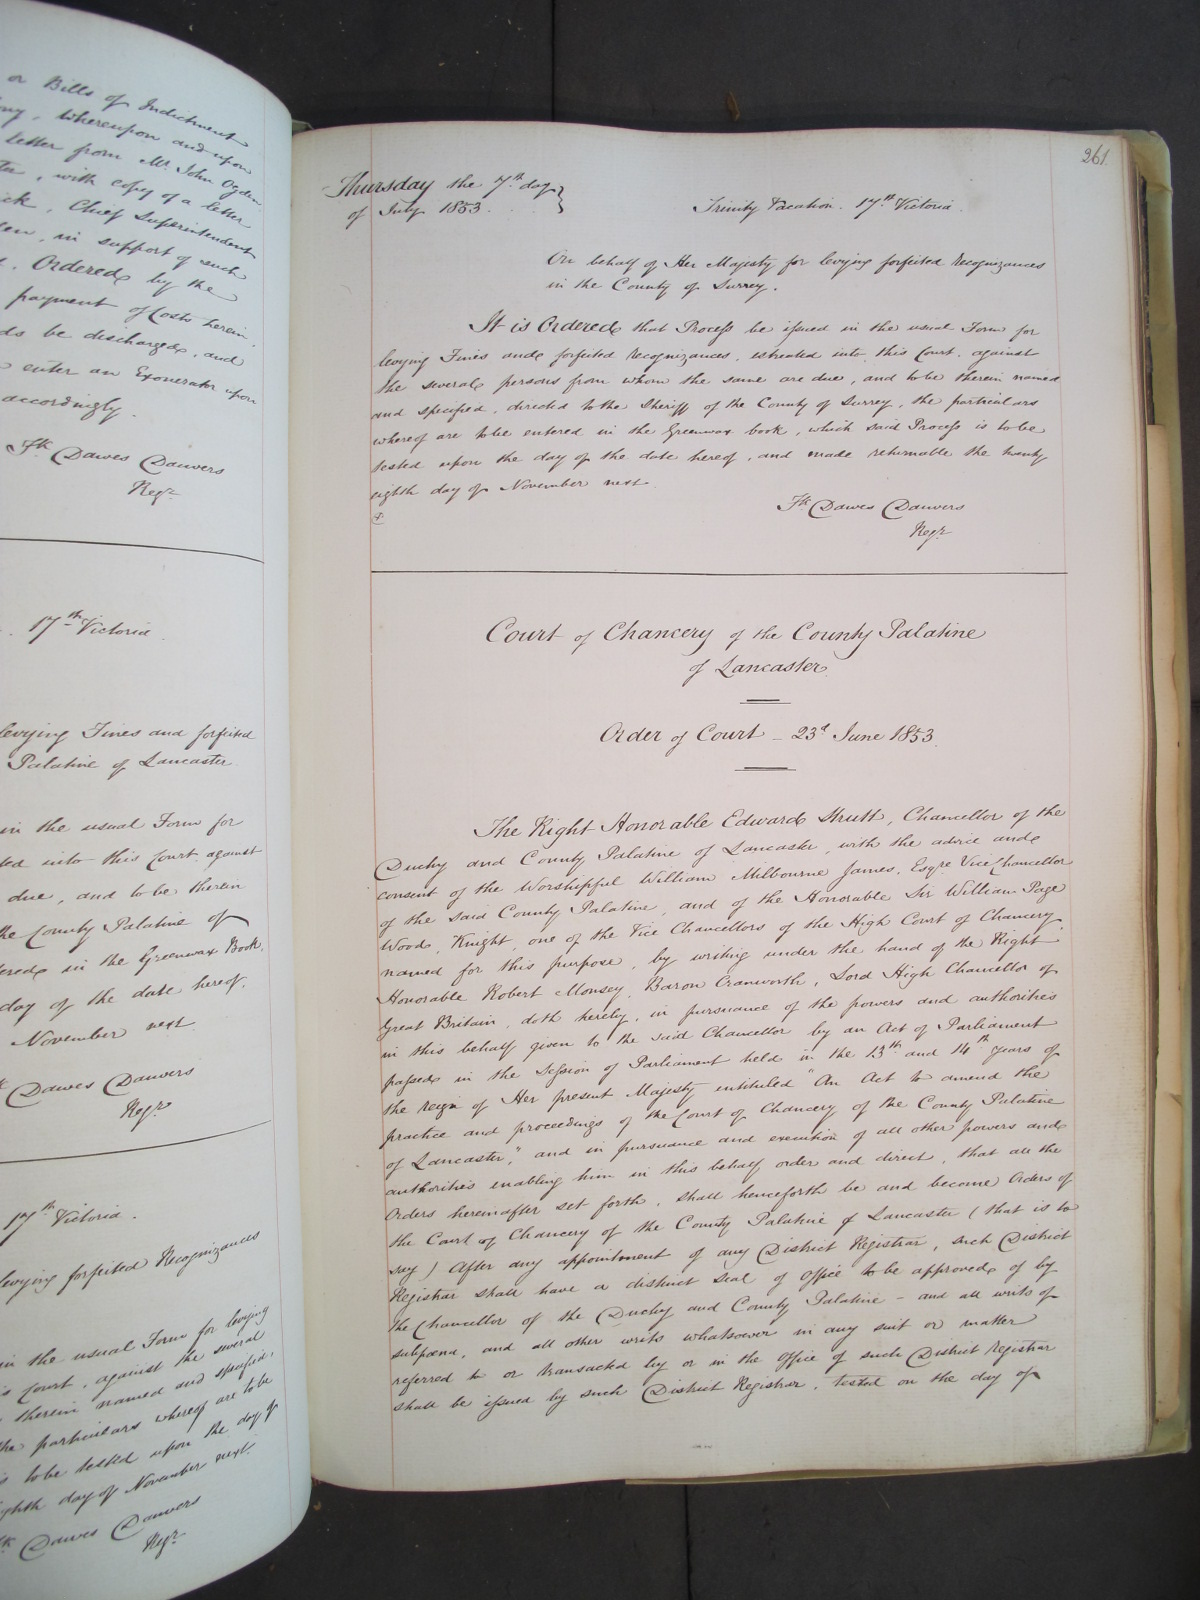 or Bills of Indictment
whereupon and upon
letter from Mr. John Ogden
with copy of a letter
Chief Superintendent
in support of such
Ordered by the
payment of Costs herein
be discharged, and
enter an Exonerator upon
accordingly.
Fk Dawes Danvers
Regr
17th Victoria
levying Fines and forfeited
Palatine of Lancaster
in the usual Form for
into this Court against
due, and to be therein
the County Palatine of
in the Greenwax Book,
day of the date hereof,
November next
Dawes Danvers
Regr
17th Victoria.
levying forfeited Recognizances
in the usual Form for levying
Court, against the several
therein named and specified,
the particulars whereof are to be
to be tested upon the day of
eighth day of November next.
Dawes Danvers
Regr
261
Thursday the 7th day
of July 1853
Trinity Vacation. 17th Victoria.
On behalf of Her Majesty for levying forfeited recognizances
in the County of Surrey.
It is Ordered that Process be issued in the usual Form for
levying Fines and forfeited recognizances, estreated into this Court, against
the several persons from whom the same are due, and to be therein named
and specified, directed to the Sheriff of the County of Surrey, the particulars
whereof are to be entered in the Greenwax book, which said Process is to be
tested upon the day of the date hereof, and made returnable the twenty
eighth day of November next
Fk Dawes Danvers
Regr
Court of Chancery of the County Palatine
of Lancaster
Order of Court – 23d June 1853
The Right Honorable Edward Strutt, Chancellor of the
Duchy and County Palatine of Lancaster, with the advice and
consent of the Worshipful William Milbourne James, Esqre Vice Chancellor
of the said County Palatine, and of the Honorable Sir William Page
Wood, Knight, one of the Vice Chancellors of the High Court of Chancery
named for this purpose, by writing under the hand of the Right
Honorable Robert Monsey, Baron Cranworth, Lord High Chancellor of
Great Britain, doth hereby, in pursuance of the powers and authorities
in this behalf given to the said Chancellor by an Act of Parliament
passed in the Session of Parliament held in the 13th and 14th years of
the reign of Her present Majesty intituled "An Act to amend the
practice and proceedings of the Court of Chancery of the County Palatine
of Lancaster," and in pursuance and execution of all other powers and
authorities enabling him in this behalf order and direct, that all the
Orders hereinafter set forth, shall henceforth be and become Orders of
the Court of Chancery of the County Palatine of Lancaster (that is to
say) After any appointment of any District Registrar, such District
Registrar shall have a distinct seal of office to be approved of by
the Chancellor of the Duchy and County Palatine – and all writs of
subpœna, and all other writs whatsoever in any suit or matter
referred to or transacted by or in the office of such District Registrar
shall be issued by such District Registrar, tested on the day of